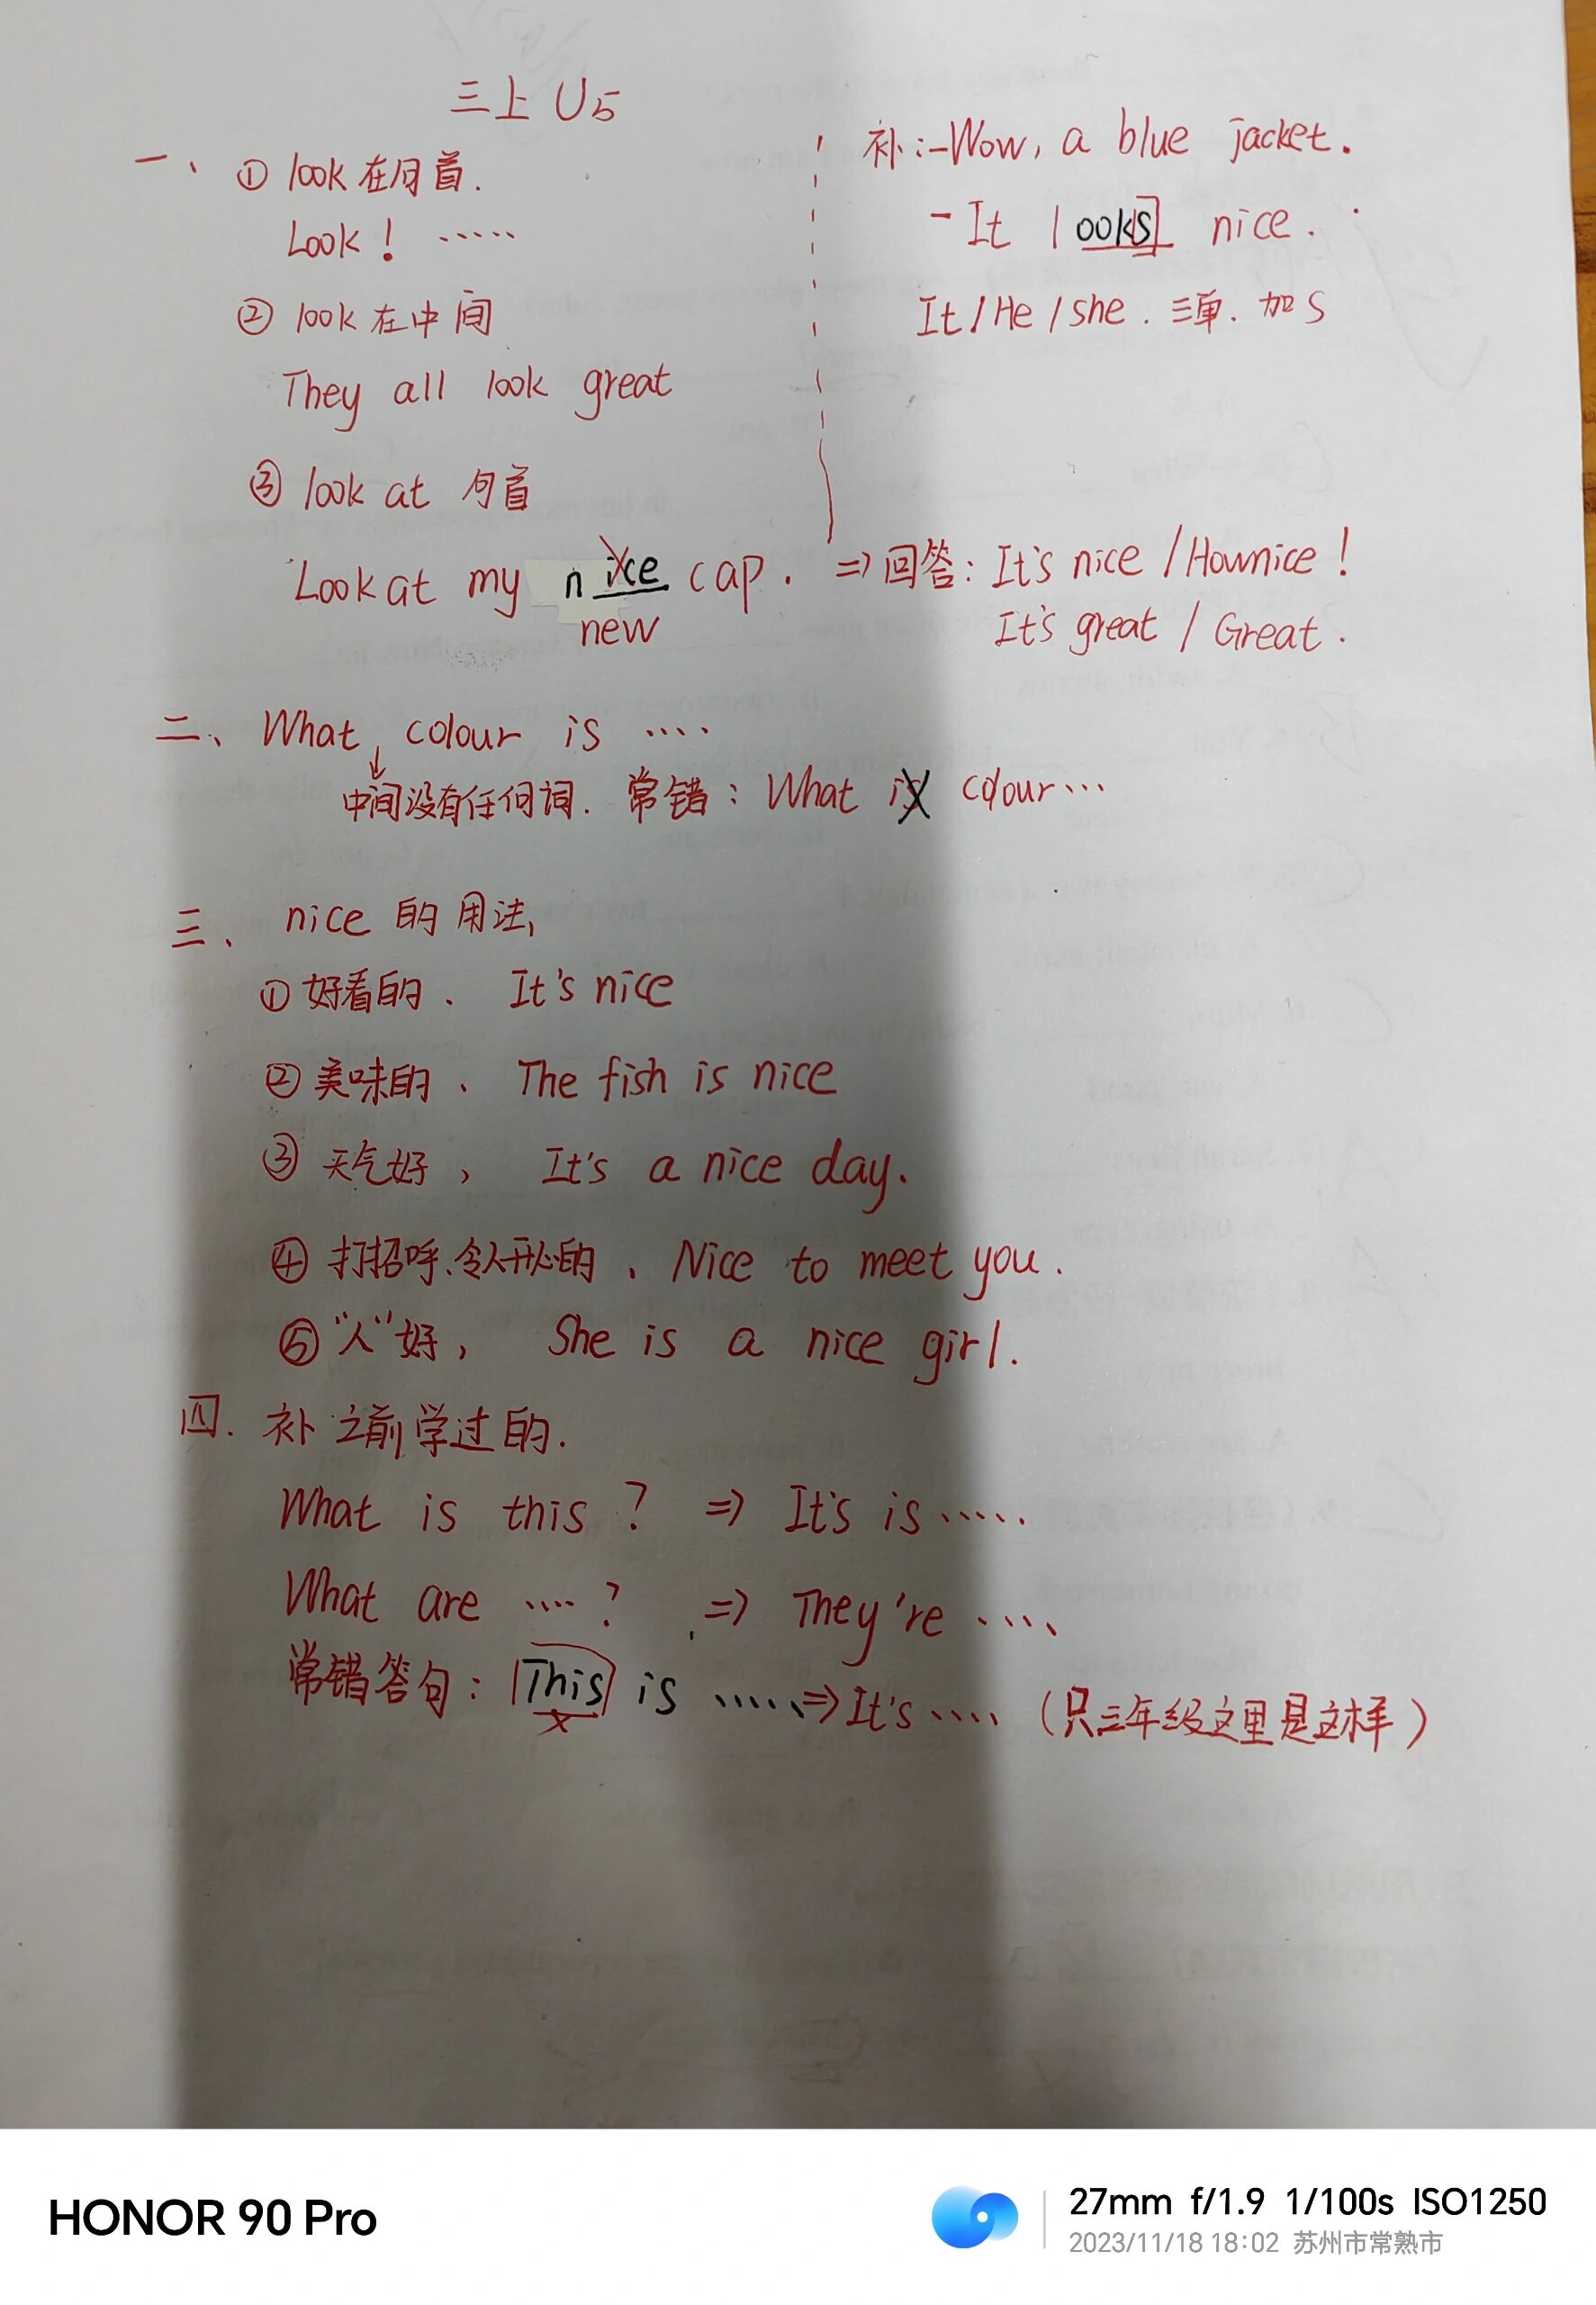 三上 U5
一、① look在句首.
Look! ·····
② look在中间
They all look great
③ look at 句首
Look at my nice cap.
new
补:-Wow, a blue jacket.
-It looks nice.
It/He/she. 三单. 加s
⇒回答: It's nice / Hownice!
It's great / Great.
二、What colour is ····
↓
中间没有任何词. 常错: What is colour···
三、nice 的用法,
①好看的、 It's nice
②美味的、 The fish is nice
③ 天气好, It's a nice day.
④ 打招呼、令人开心的、Nice to meet you.
⑤"人"好, She is a nice girl.
四. 补之前学过的.
What is this? ⇒ It's is·····
What are ····? ⇒ They're ····
常错答句: This is ·····⇒It's···· (只三年级这里是这样)
HONOR 90 Pro
27mm f/1.9 1/100s ISO1250
2023/11/18 18:02 苏州市常熟市